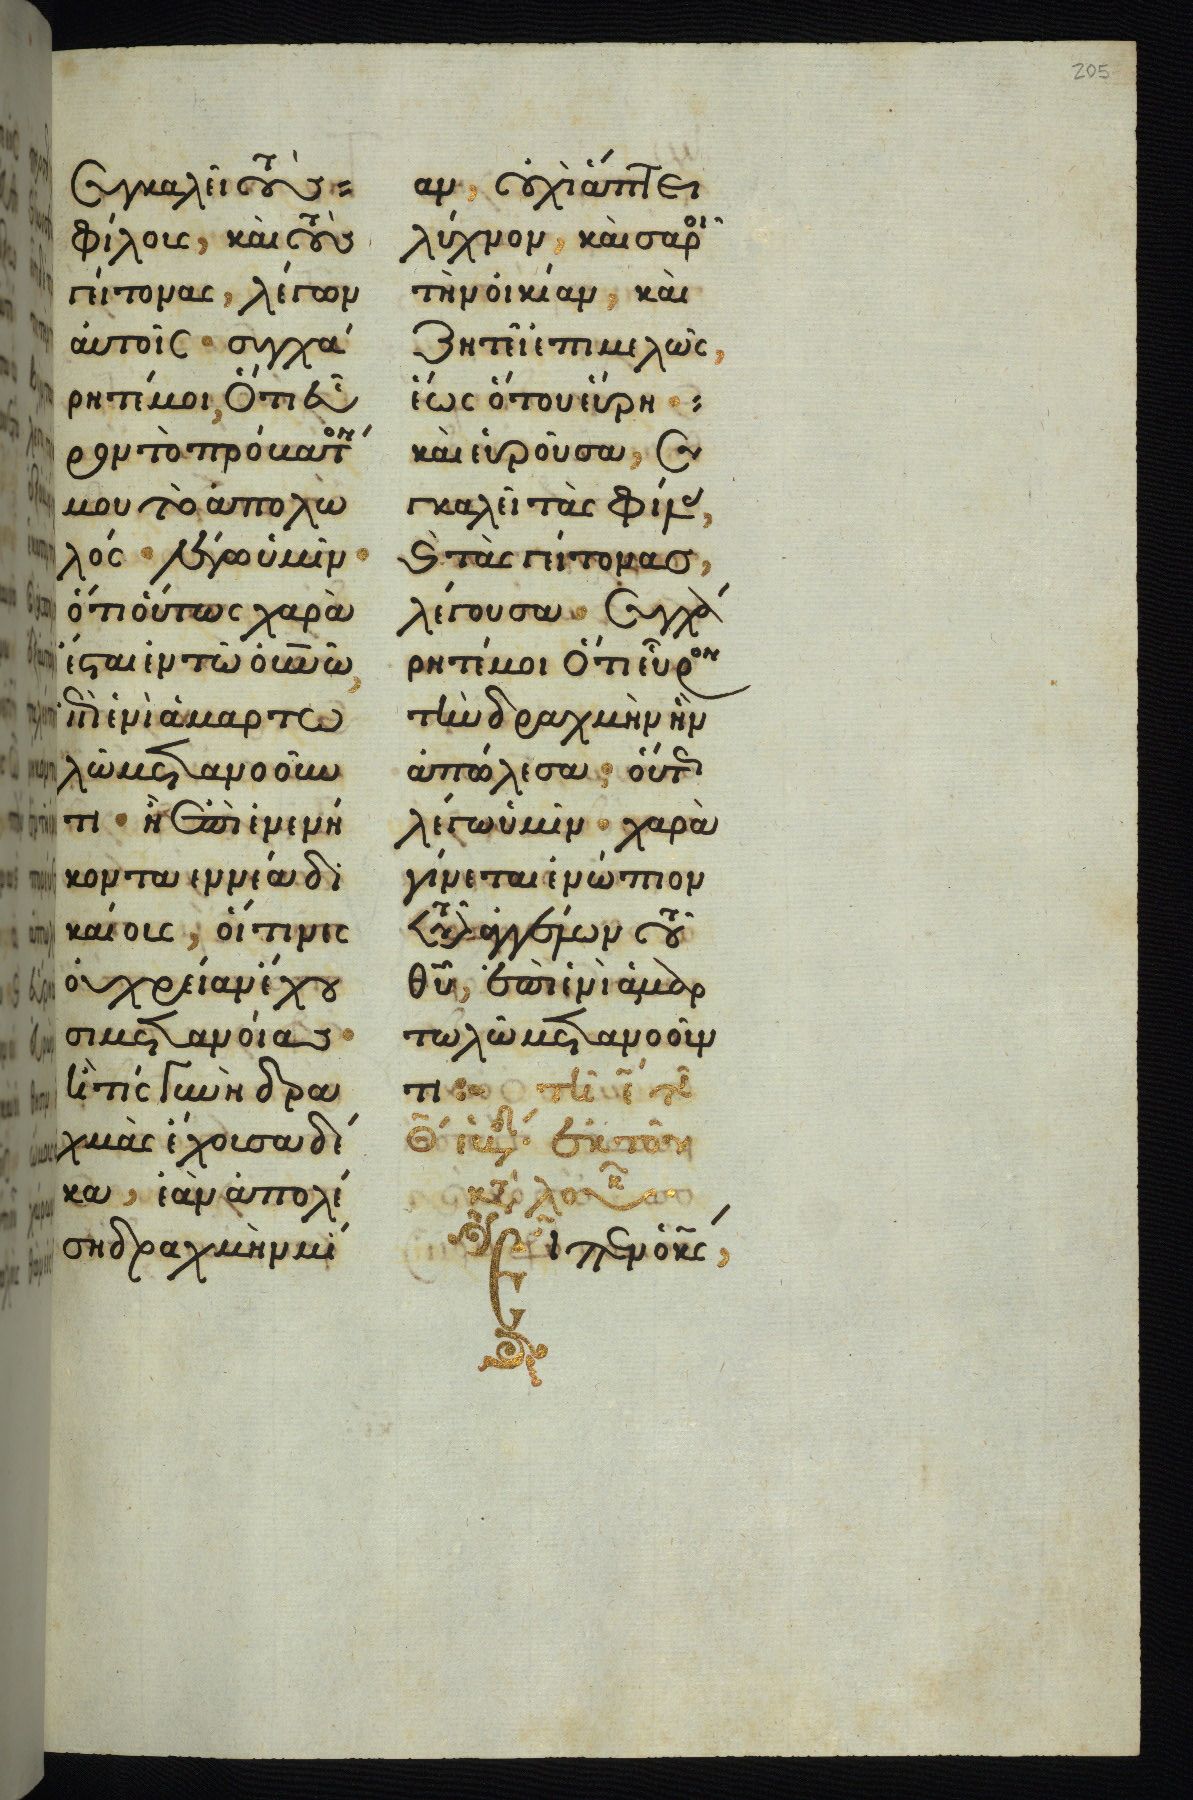 205
συγκαλεῖ τοὺς
φίλους, καὶ τοὺς
γείτονας, λέγων
αὐτοῖς· συγχά
ρητέ μοι, ὅτι εὗ
ρον τὸ πρόβατόν
μου τὸ ἀπολω
λός· λέγω ὑμῖν·
ὅτι οὕτως χαρὰ
ἔσται ἐν τῷ οὐνῷ,
ἐπὶ ἑνὶ ἁμαρτω
λῷ μετανοοῦν
τι· ἢ ἐπὶ ἐνενή
κοντα εννέα δι
καίοις, οἵτινες
οὐ χρείαν ἔχου
σι μετανοίας·
ἢ τίς γυνὴ δρα
χμὰς ἔχουσα δέ
κα, ἐὰν ἀπολέ
ση δραχμὴν μί
αν, οὐχὶ ἅπτει
λύχνον, καὶ σαροῖ
τὴν οἰκίαν, καὶ
ζητεῖ ἐπιμελῶς,
ἕως ὅτου εὕρη·
καὶ εὑροῦσα, συ
γκαλεῖ τὰς φίλας,
καὶ τὰς γείτονας,
λέγουσα· συγχά
ρητέ μοι ὅτι εὗρον
τὴν δραχμὴν ἣν
ἀπώλεσα· οὕτω
λέγω ὑμῖν· χαρὰ
γίνεται ἐνώπιον
τῶν ἀγγέλων τοῦ
θῦ, ἐπὶ ἑνὶ ἁμαρ
τωλῷ μετανοοῦν
τι
ἐκ τοῦ κ
κατὰ λουκ
Εἶπεν ὁ κς,